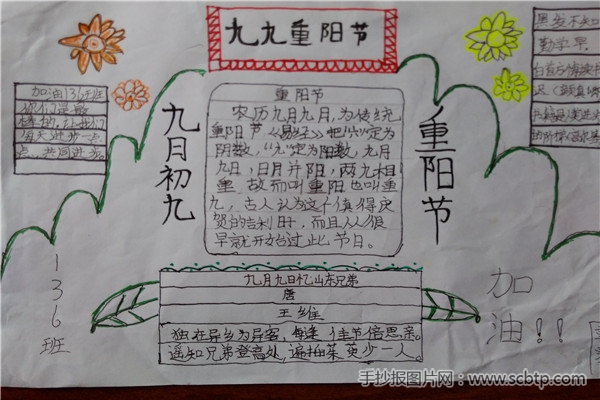 九九重阳节
加油136班
每天进步一点
点，共同进步。
九月初九
重阳节
农历九月九月，为传统
重阳节《易经》把"六"定为
阴数，"九"定为阳数，九月
九日，日月并阳，两九相
重，故而叫重阳也叫重
九，古人认为这个值得庆
贺的吉利日子，而且从很
早就开始过此节日。
重阳节
黑发不知
勤学早，
九月九日忆山东兄弟
唐
王维
独在异乡为异客，每逢佳节倍思亲。
遥知兄弟登高处，遍插茱萸少一人。
136班
加油！！
手抄报图片网：www.scbtp.com